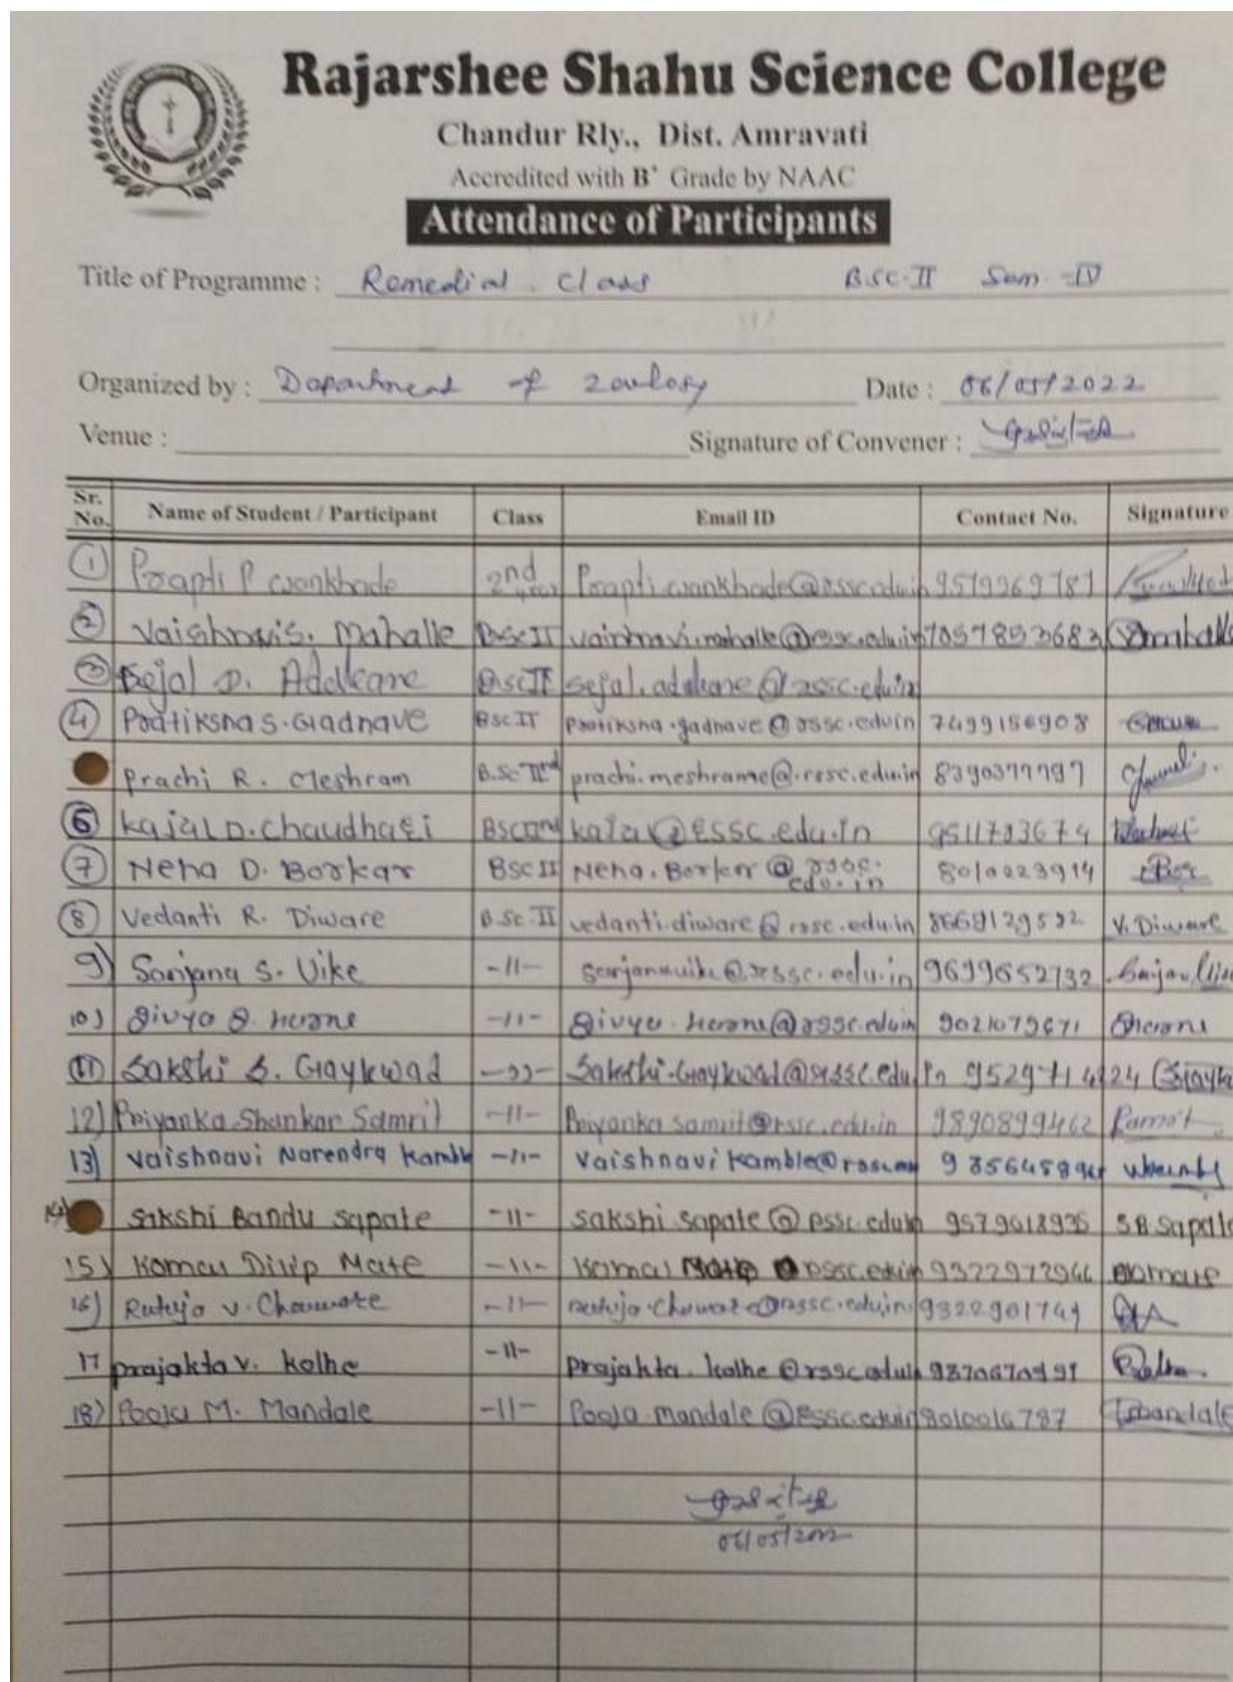 Rajarshee Shahu Science College
Chandur Rly., Dist. Amravati
Accredited with B+ Grade by NAAC
Attendance of Participants
Title of Programme : Remedial Class B.SC.II Sem - IV
Organized by : Department of Zoology Date : 06/05/2022
Venue : Signature of Convener :
Sr. No. Name of Student / Participant Class Email ID Contact No. Signature
1 Prapti P wankhade 2nd year Prapti.wankhade@rssc.edu.in 9579369781
2 Vaishnavi S. Mahalle BSc II vaishnavi.mahalle@rssc.edu.in 7057853683
3 Sejal D. Addkane BSc II sejal.adakane@rssc.edu.in
4 Pratiksha S. Gadnave BSc II pratiksha.gadnave@rssc.edu.in 7499156908
Prachi R. Meshram B.Sc IInd prachi.meshrame@.rssc.edu.in 8390377797
6 Kajal D. Chaudhari BSc IInd @rssc.edu.in 9511783674
7 Neha D. Borkar BSc II Neha.Borkar@rssc.edu.in 8010023914
8 Vedanti R. Diware B.Sc. II vedanti.diware@rssc.edu.in 8669129592 V. Diware
9) Sanjana S. Uike -11- sanjanauike@rssc.edu.in 9699652732
10) Divya -11- 9021079671
11 Sakshi S. Gaykwad -11- Sakshi.Gaykwad@rssc.edu.in 9529714124
12) Priyanka Shankar Samrit -11- Priyanka samrit@rssc.edu.in 9890899462
13) Vaishnavi Narendra Kamble -11- Vaishnavi kamble@
14) Sakshi Bandu Sapate -11- sakshi sapate@rssc.edu.in 9579018935 S B Sapate
15) Komal Dilip Mate -11- Komal Mate @rssc.edu.in 9322972946
16) Rutuja V. -11- 9322901741
17 prajakta V. kolhe -11- Prajakta.kolhe@rssc.edu.in
18) Pooja M. Mandale -11- Pooja mandale@rssc.edu.in 8010016787
06/05/2022